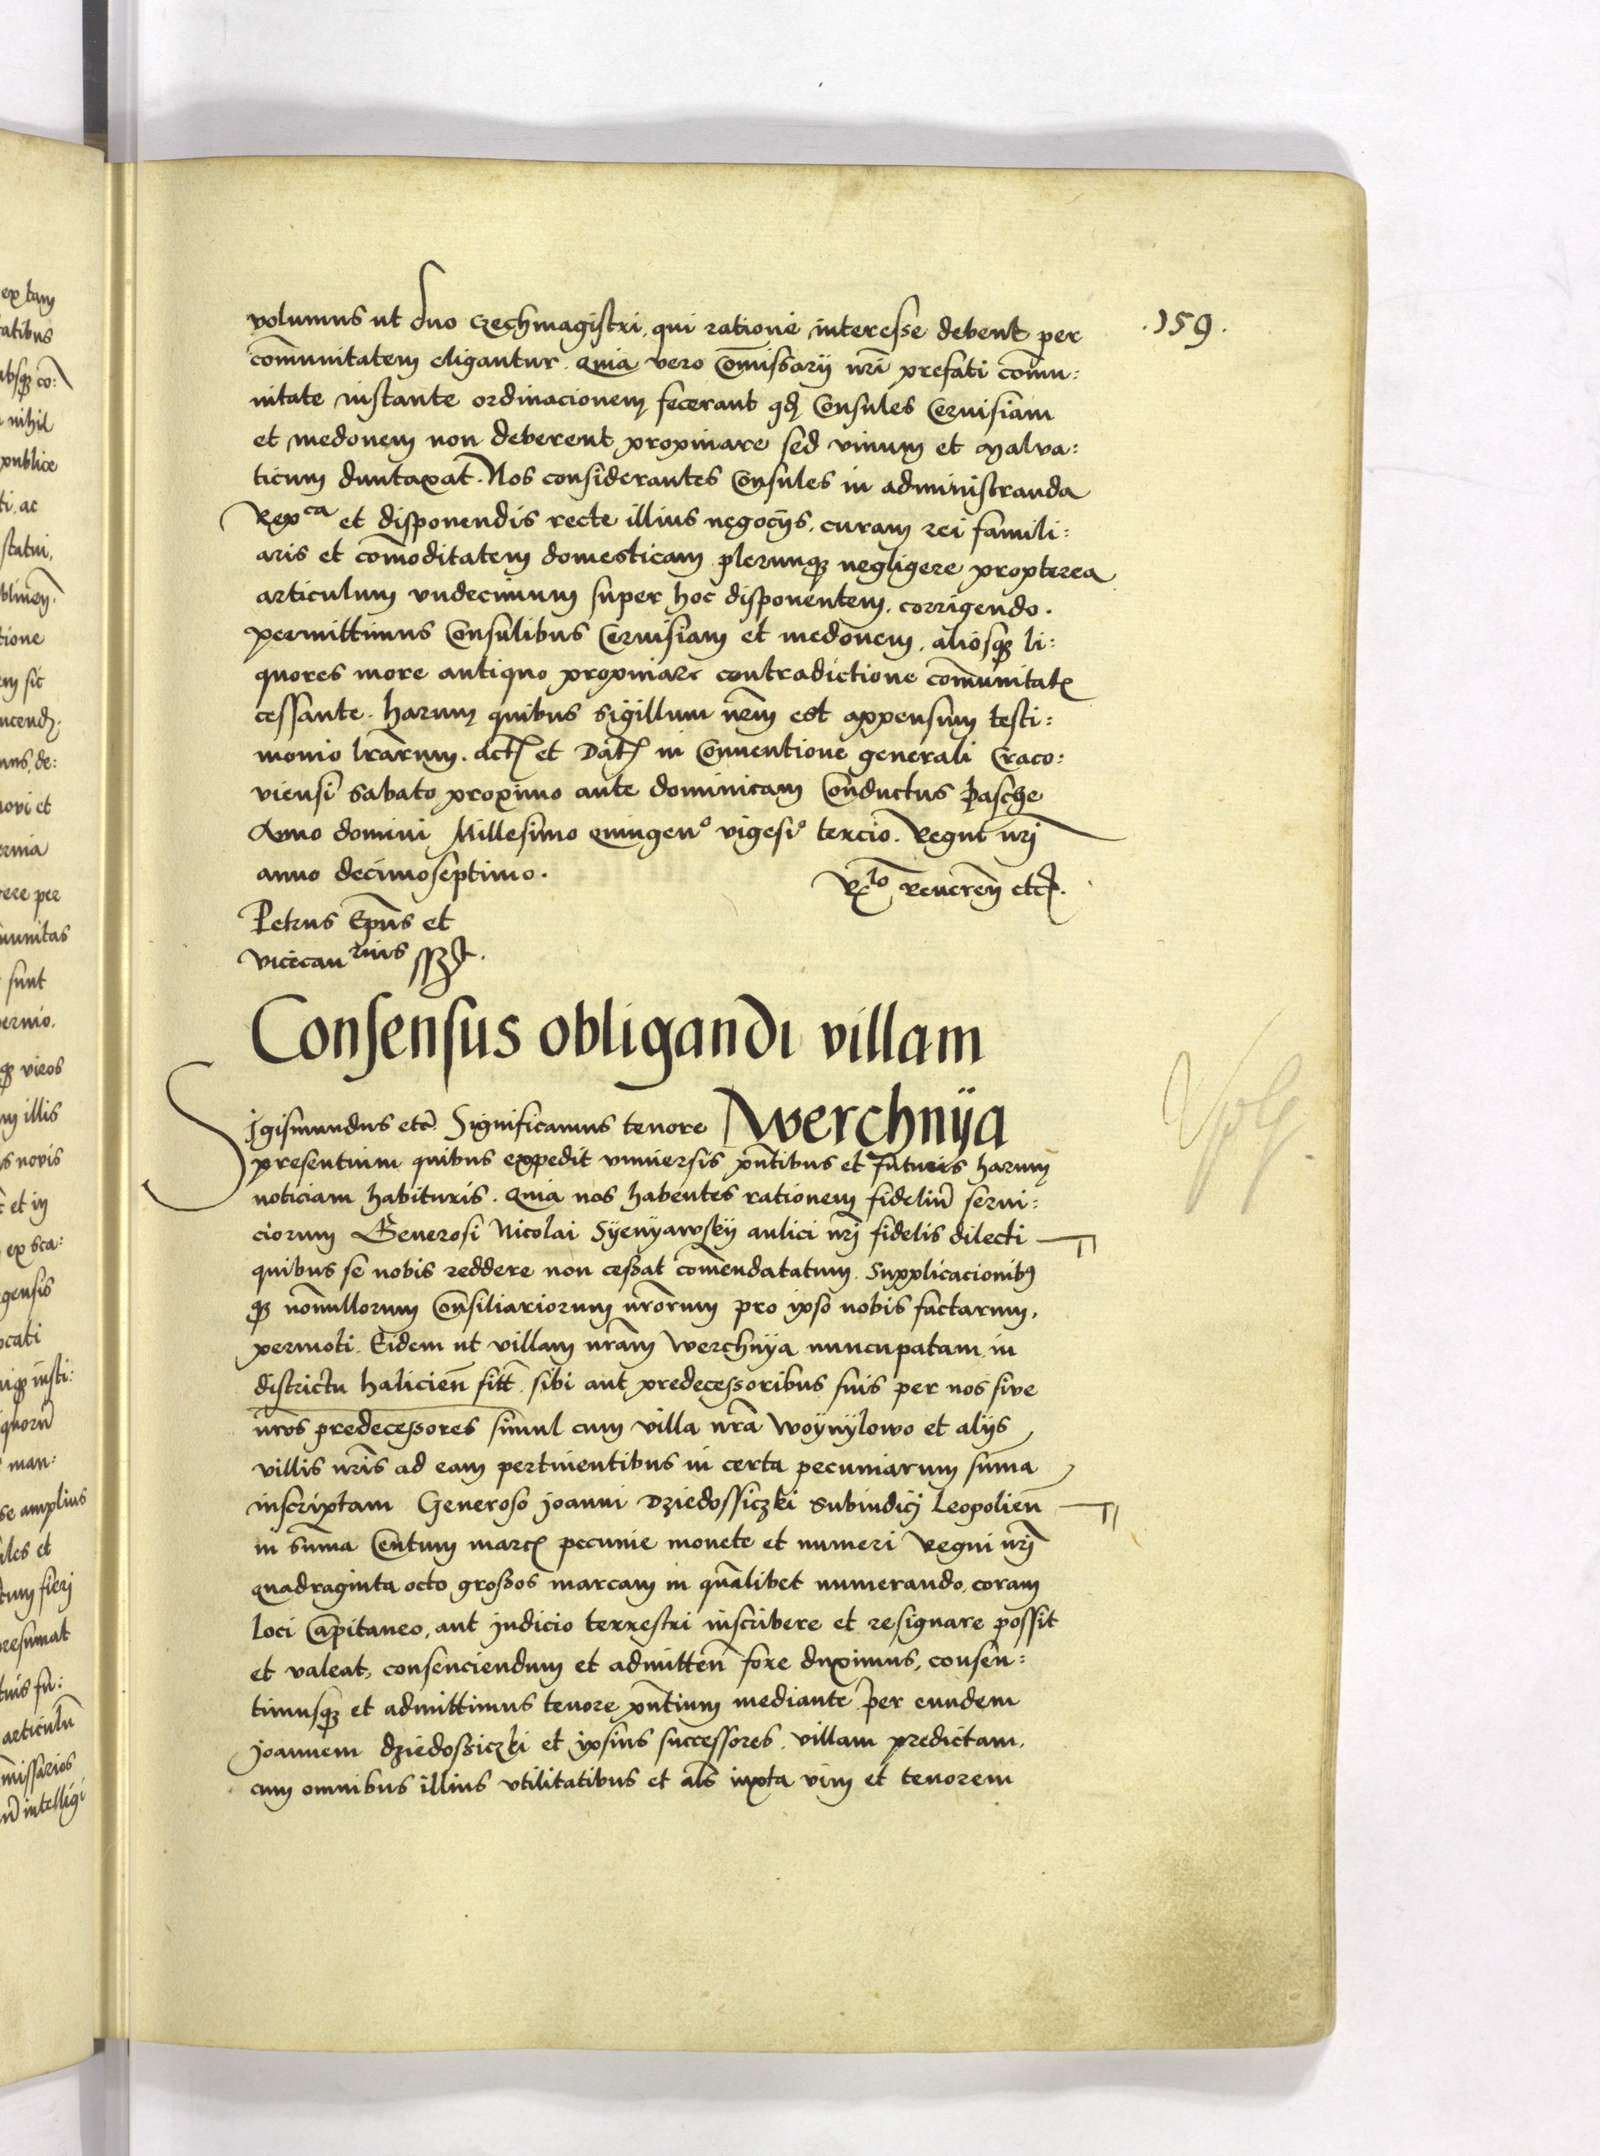 .159.
volumus ut duo czechmagistri, qui rationi interesse debent per
com̄unitatem eligantur. Quia vero Com̄issarÿ nr̄i prefati com̄u:
nitate instante ordinacionem fecerant qđ Consules Cervisiam
et medonem non deberent propinare sed vinum et malva:
ticum duntaxat. Nos considerantes Consules in administranda
Repca et disponendis recte illius negocÿs, curam rei famili:
aris et com̄oditatem domesticam plerunqȝ negligere propterea
articulum undecimum super hoc disponentem, corrigendo.
permittimus Consulibus Cervisiam et medonem, aliosqȝ li:
quores more antiquo propinare contradictione com̄unitatꝭ
cessante. harum quibus sigillum nr̄m est appensum testi:
monio lr̄arum. Actꝭ et Datꝭ in Conventione generali Craco:
viensi Sabato proximo ante dominicam Conductus Pasche
Anno domini Millesimo quingenº vigesiº tercio. Regni nr̄i
anno decimoseptimo.
Rlo Reveren̄ etcꝭ.
Petrus Ep̄us et
vicecanrius sszt.
Consensus obligandi villam
Werchnÿa
Sigismundus etc̄ Significamus tenore
presentium quibus expedit universis pn̄tibus et futuris harum
noticiam habituris. Quia nos habentes rationem fideliū servi:
ciorum Generosi Nicolai Sÿenÿawskÿ aulici nr̄j fidelis dilecti
quibus se nobis reddere non cessat com̄endatatum. Supplicacionibꝰ
qȝ nonnullorum Consiliariorum nr̄orum pro ipso nobis factarum,
permoti. Eidem ut villam nr̄am Werchnÿa nuncupatam in
districtu halicien̄ sitt̄, sibi aut predecessoribus suis per nos sive
nr̄os predecessores simul cum villa nr̄a Woÿnÿlowo et alÿs
villis nr̄is ad eam pertinentibus in certa pecuniarum sum̄a
inscriptam Generoso Joanni Dziedossiczki Subiudicj Leopolien̄
in sum̄a Centum marcꝭ pecunie monete et numeri Regni nr̄j
quadraginta octo grossos marcam in qualibet numerando, coram
loci Capitaneo, aut judicio terrestri inscribere et resignare possit
et valeat, consenciendum et admitten̄ fore duximus, consen:
timusqȝ et admittimus tenore pn̄tium mediante per eundem
Joannem dziedossiczki et ipsius successores, villam predictam,
cum omnibus illius utilitatibus et al̄s iuxta vim et tenorem